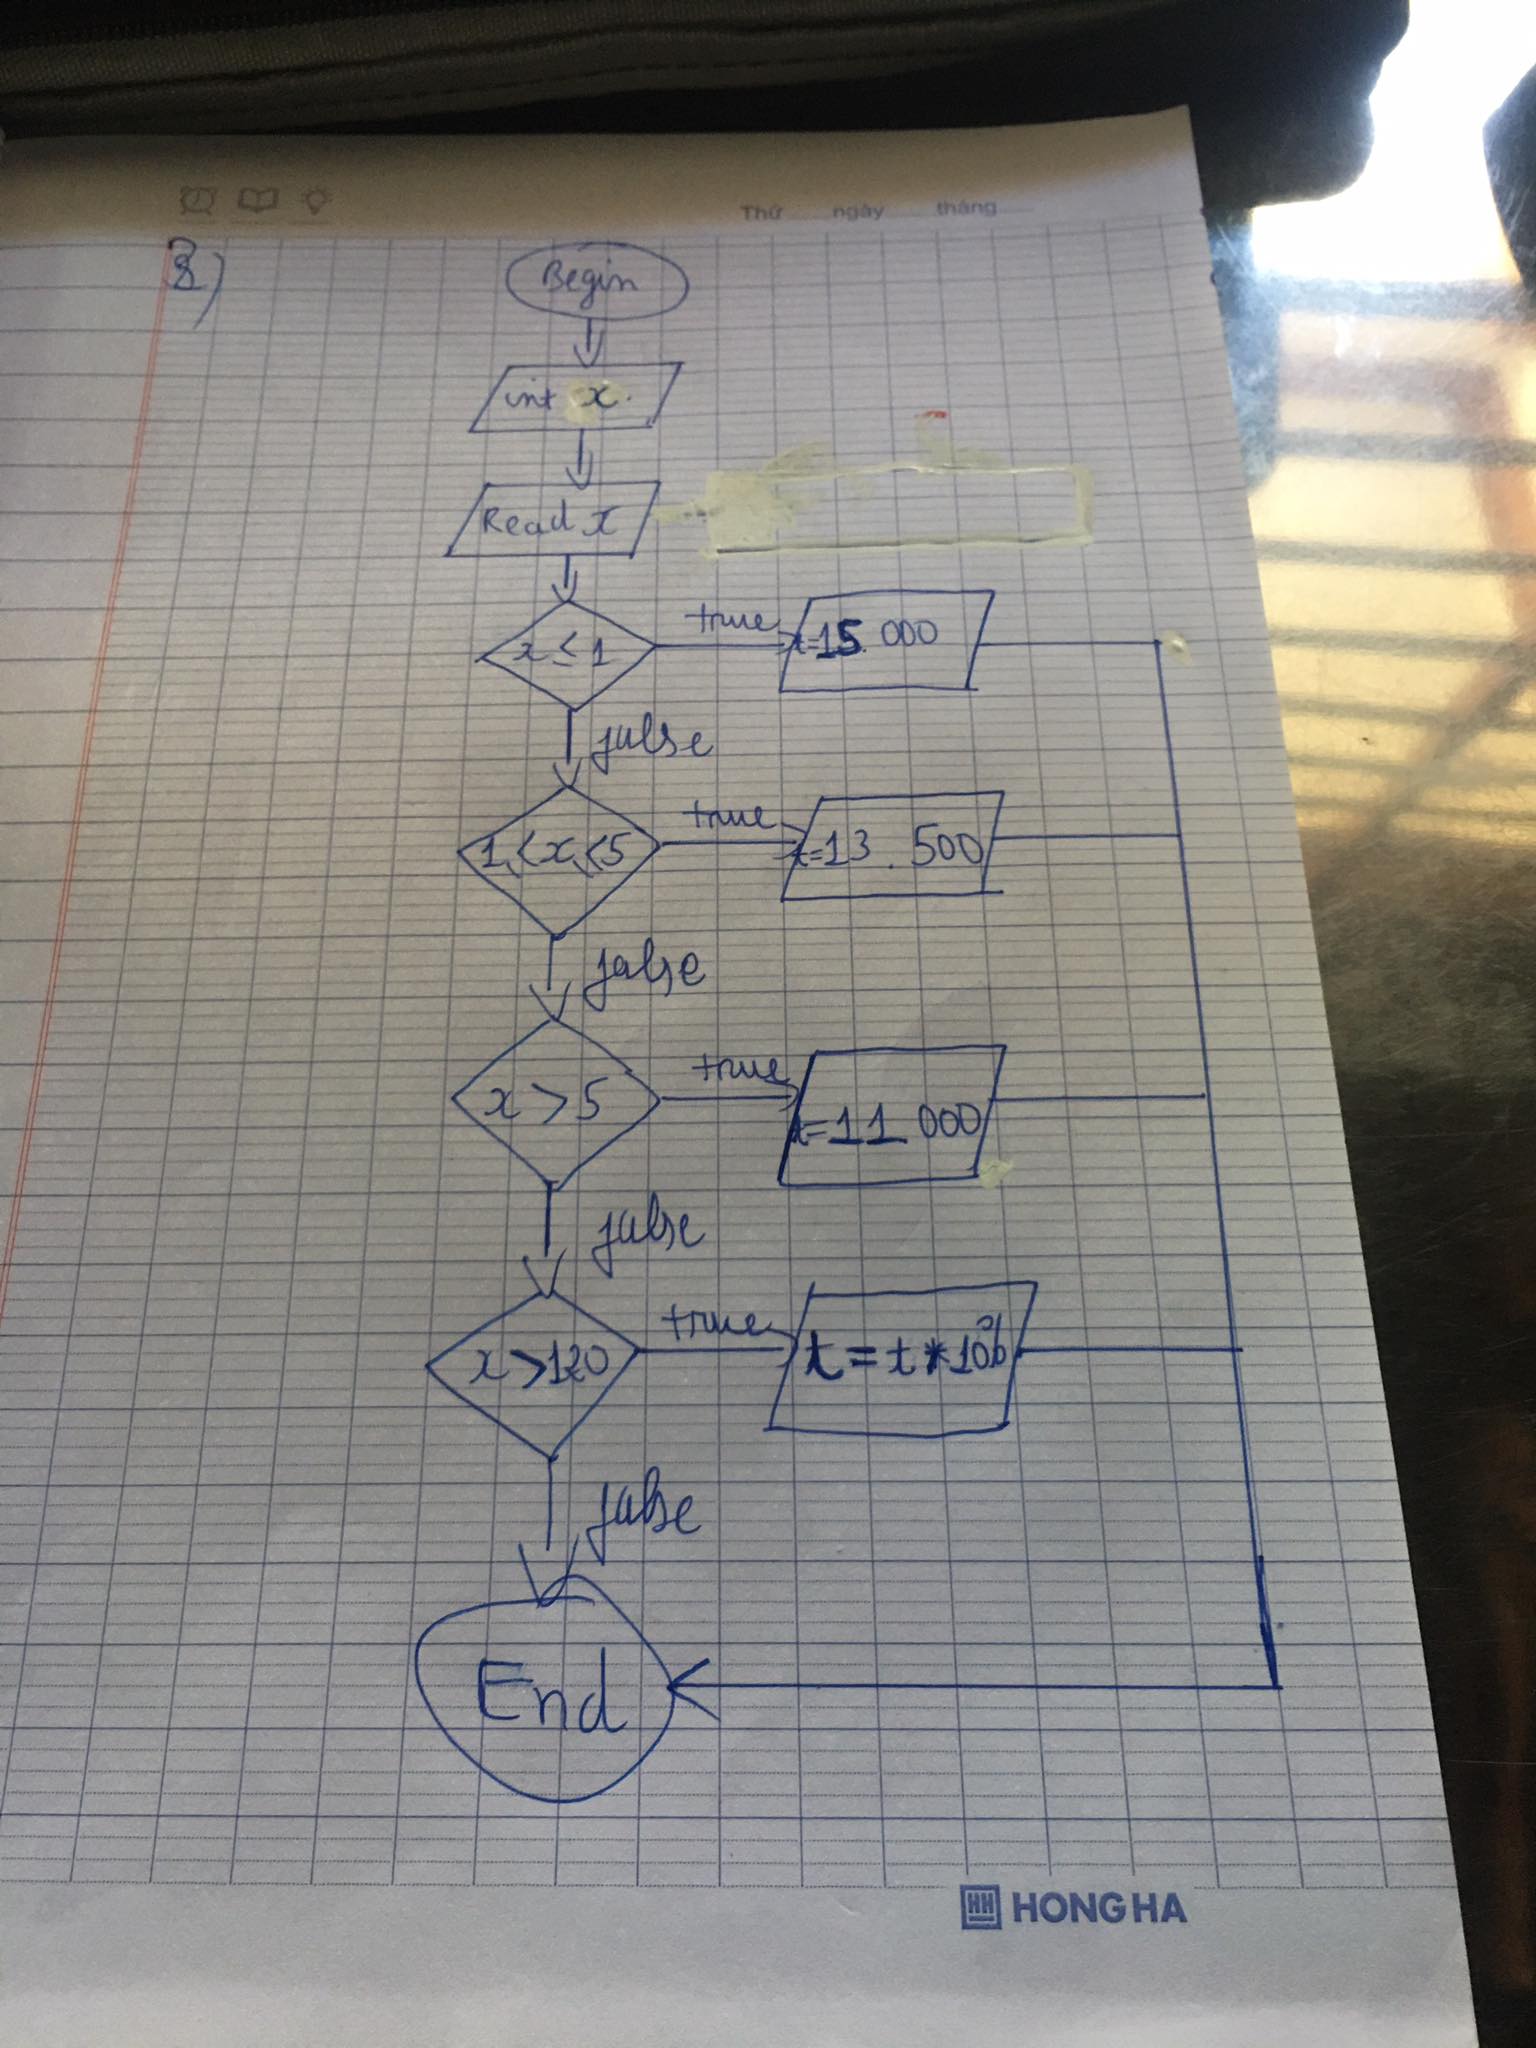 Thứ ngày tháng
8)
Begin
int x.
Read x
x ≤ 1
true
t=15.000
false
1<x<5
true
t=13.500
false
x > 5
true
t=11.000
false
x >120
true
t = t * 10%
false
End
HH HONG HA